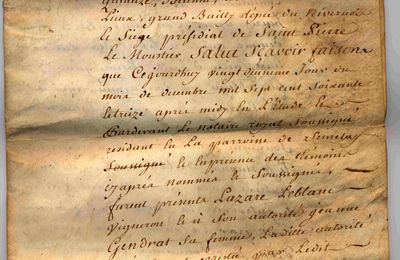 Lieux, grand Bailly d'épée du Nivernois
le Siège présidial de Saint Pierre
le Moustier Salut Scavoir faisons
que Cejourdhuy vingt deuxieme Jour du
mois de decembre mil Sept cent Soixante
et treize après midy En L'Etude et
Pardevant Le notaire royal Soussigné
residant En La parroisse de Semelay
Soussigné Et En presence des temoins
cyaprès nommés Et Soussignés,
furent présents Lazare Leblanc
Vigneron Et de Son autorité jeanne
Gendrat Sa femme, Laditte autorité
par Ledit